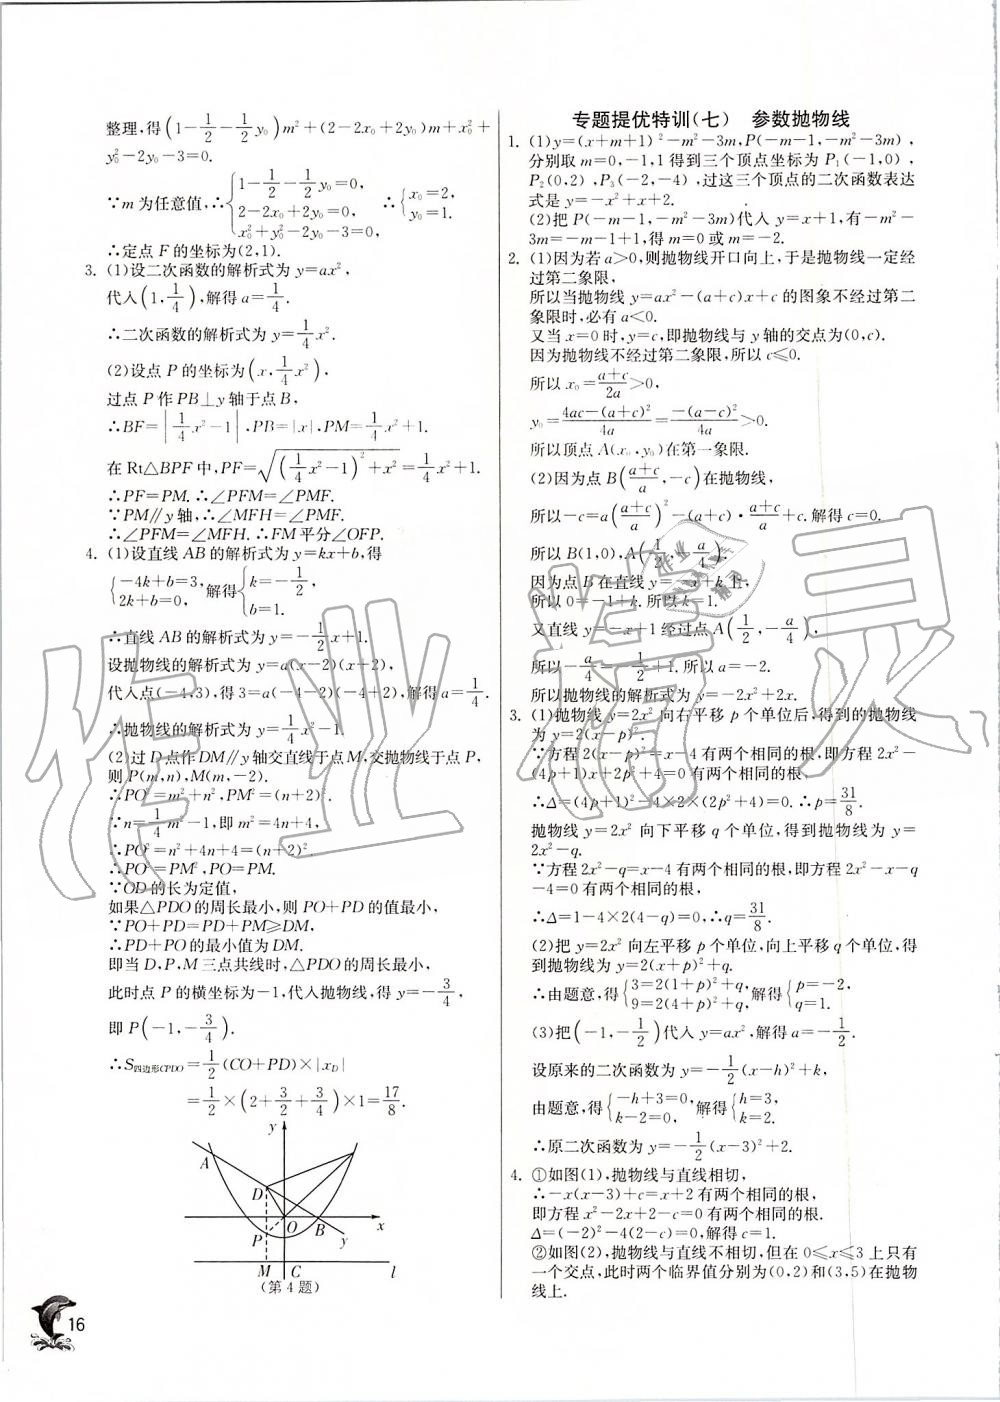 整理,得(1-1/2-1/2y₀)m²+(2-2x₀+2y₀)m+x₀²+
y₀²-2y₀-3=0.
∵m为任意值,∴{1-1/2-1/2y₀=0, 2-2x₀+2y₀=0, x₀²+y₀²-2y₀-3=0, ∴{x₀=2, y₀=1.
∴定点F的坐标为(2,1).
3. (1)设二次函数的解析式为y=ax²,
代入(1,1/4),解得a=1/4.
∴二次函数的解析式为y=1/4x².
(2)设点P的坐标为(x,1/4x²),
过点P作PB⊥y轴于点B,
∴BF=|1/4x²-1|,PB=|x|,PM=1/4x²+1.
在Rt△BPF中,PF=√((1/4x²-1)²+x²)=1/4x²+1.
∴PF=PM.∴∠PFM=∠PMF.
∵PM∥y轴,∴∠MFH=∠PMF.
∴∠PFM=∠MFH.∴FM平分∠OFP.
4. (1)设直线AB的解析式为y=kx+b,得
{-4k+b=3, 2k+b=0, 解得{k=-1/2, b=1.
∴直线AB的解析式为y=-1/2x+1.
设抛物线的解析式为y=a(x-2)(x+2),
代入点(-4,3),得3=a(-4-2)(-4+2),解得a=1/4.
∴抛物线的解析式为y=1/4x²-1.
(2)过D点作DM∥y轴交直线于点M,交抛物线于点P,
则P(m,n),M(m,-2).
∴PO²=m²+n²,PM²=(n+2)².
∵n=1/4m²-1,即m²=4n+4,
∴PO²=n²+4n+4=(n+2)².
∴PO²=PM²,PO=PM.
∵OD的长为定值,
如果△PDO的周长最小,则PO+PD的值最小,
∵PO+PD=PD+PM≥DM,
∴PD+PO的最小值为DM.
即当D,P,M三点共线时,△PDO的周长最小,
此时点P的横坐标为-1,代入抛物线,得y=-3/4,
即P(-1,-3/4).
∴S四边形CPDO=1/2(CO+PD)×|xD|
=1/2×(2+3/2+3/4)×1=17/8.
y
A
D
O B x
P y
M C l
(第4题)
16
专题提优特训(七) 参数抛物线
1. (1)y=(x+m+1)²-m²-3m,P(-m-1,-m²-3m),
分别取m=0,-1,1得到三个顶点坐标为P₁(-1,0),
P₂(0,2),P₃(-2,-4),过这三个顶点的二次函数表达
式是y=-x²+x+2.
(2)把P(-m-1,-m²-3m)代入y=x+1,有-m²-
3m=-m-1+1,得m=0或m=-2.
2. (1)因为若a>0,则抛物线开口向上,于是抛物线一定经
过第二象限,
所以当抛物线y=ax²-(a+c)x+c的图象不经过第二
象限时,必有a<0.
又当x=0时,y=c,即抛物线与y轴的交点为(0,c).
因为抛物线不经过第二象限,所以c≤0.
所以x₀=(a+c)/2a>0,
y₀=(4ac-(a+c)²)/4a=-(a-c)²/4a>0.
所以顶点A(x₀,y₀)在第一象限.
(2)因为点B((a+c)/a,-c)在抛物线,
所以-c=a((a+c)/a)²-(a+c)·(a+c)/a+c.解得c=0.
所以B(1,0),A(1/2,-a/4).
因为点B在直线y=-x+k上,
所以0=-1+k.所以k=1.
又直线y=-x+1经过点A(1/2,-a/4),
所以-a/4=-1/2+1.所以a=-2.
所以抛物线的解析式为y=-2x²+2x.
3. (1)抛物线y=2x²向右平移p个单位后,得到的抛物线
为y=2(x-p)².
∵方程2(x-p)²=x-4有两个相同的根,即方程2x²-
(4p+1)x+2p²+4=0有两个相同的根,
∴Δ=(4p+1)²-4×2×(2p²+4)=0.∴p=31/8.
抛物线y=2x²向下平移q个单位,得到抛物线为y=
2x²-q.
∵方程2x²-q=x-4有两个相同的根,即方程2x²-x-q
-4=0有两个相同的根,
∴Δ=1-4×2(4-q)=0,∴q=31/8.
(2)把y=2x²向左平移p个单位,向上平移q个单位,得
到抛物线为y=2(x+p)²+q.
∴由题意,得{3=2(1+p)²+q, 9=2(4+p)²+q, 解得{p=-2, q=1.
(3)把(-1,-1/2)代入y=ax²,解得a=-1/2.
设原来的二次函数为y=-1/2(x-h)²+k,
由题意,得{-h+3=0, k-2=0, 解得{h=3, k=2.
∴原二次函数为y=-1/2(x-3)²+2.
4. ①如图(1),抛物线与直线相切,
∴-x(x-3)+c=x+2有两个相同的根,
即方程x²-2x+2-c=0有两个相同的根.
Δ=(-2)²-4(2-c)=0,解得c=1.
②如图(2),抛物线与直线不相切,但在0≤x≤3上只有
一个交点,此时两个临界值分别为(0,2)和(3,5)在抛物
线上.
作业精灵